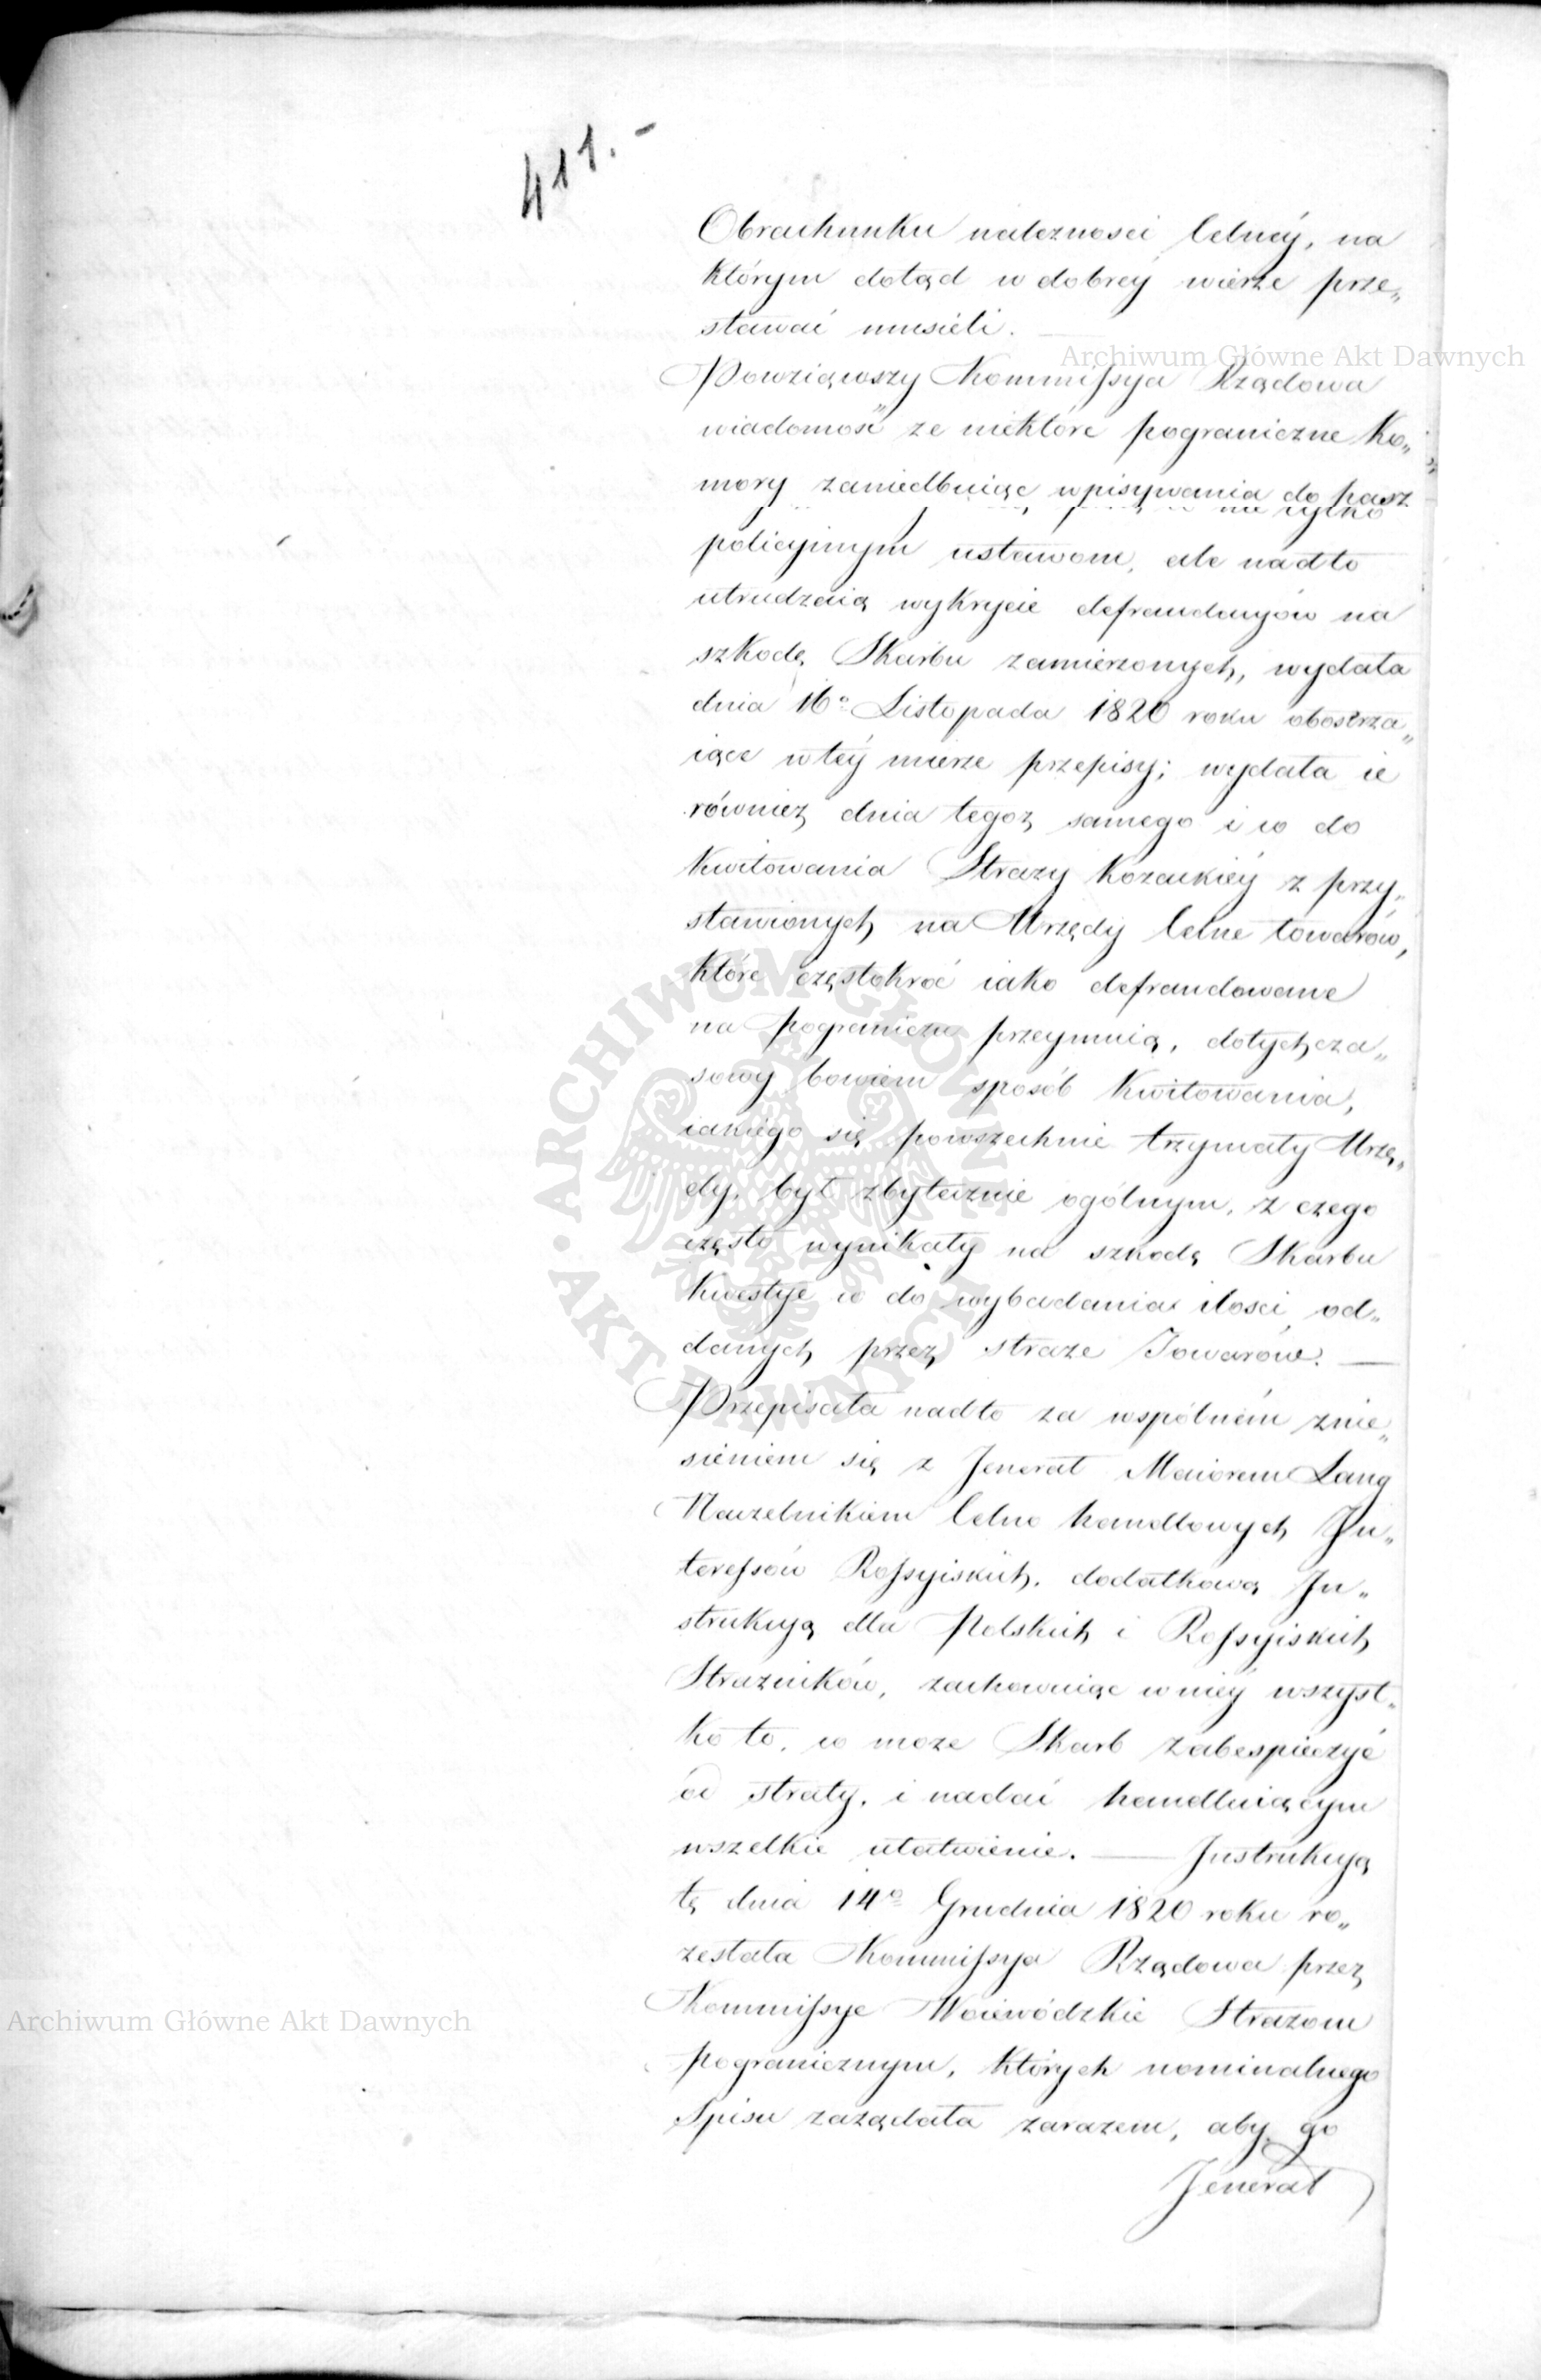 411.-
Obrachunku należności Celnéy, na
którym dotąd w dobrey wierze prze„
stawać musieli. —
Archiwum Główne Akt Dawnych
Powziąwszy Kommissya Rządowa
wiadomość że niektóre pograniczne Ko„
mory zaniedbuiąc wpisywania do pasz
nie tylko
policyinym ustawom, ale nadto
utrudzaią wykrycie defraudacyów na
szkodę Skarbu zamierzonych, wydała
dnia 16º Listopada 1820 roku obostrza„
iące w téy mierze przepisy; wydała ie
również dnia tegoż samego i co do
kwitowania Straży kozackiéy z przy„
stawionych na Urzędy Celne towarów,
które częstokroć iako defraudowane
na pograniczu przeymuią, dotychcza„
sowy bowiem sposób kwitowania,
iakiego się powszechnie trzymały Urzę„
dy, był zbytecznie ogólnym, z czego
często wynikały na szkodę Skarbu
kwestye co do wybadania ilości od„
danych przez straże Towarów. —
Przepisała nadto za wspólném znie„
sieniem się z Jenerał Maiorem Lang
Naczelnikiem Celno handlowych In„
teressów Rossyiskich, dodatkową In„
strukcyą dla Polskich i Rossyiskich
Strażników, zachowuiąc w niéy wszyst„
ko to, co może Skarb zabespieczyć
od straty, i nadać handluiącym
wszelkie ułatwienie. — Instrukcyą
tę dnia 14º Grudnia 1820 roku ro„
zesłała Kommissya Rządowa przez
Kommissye Woiewódzkie Strażom
pogranicznym, których nominalnego
Spisu zażądała zarazem, aby go
Jenerał
Archiwum Główne Akt Dawnych
ARCHIWUM GŁÓWNE • AKT DAWNYCH